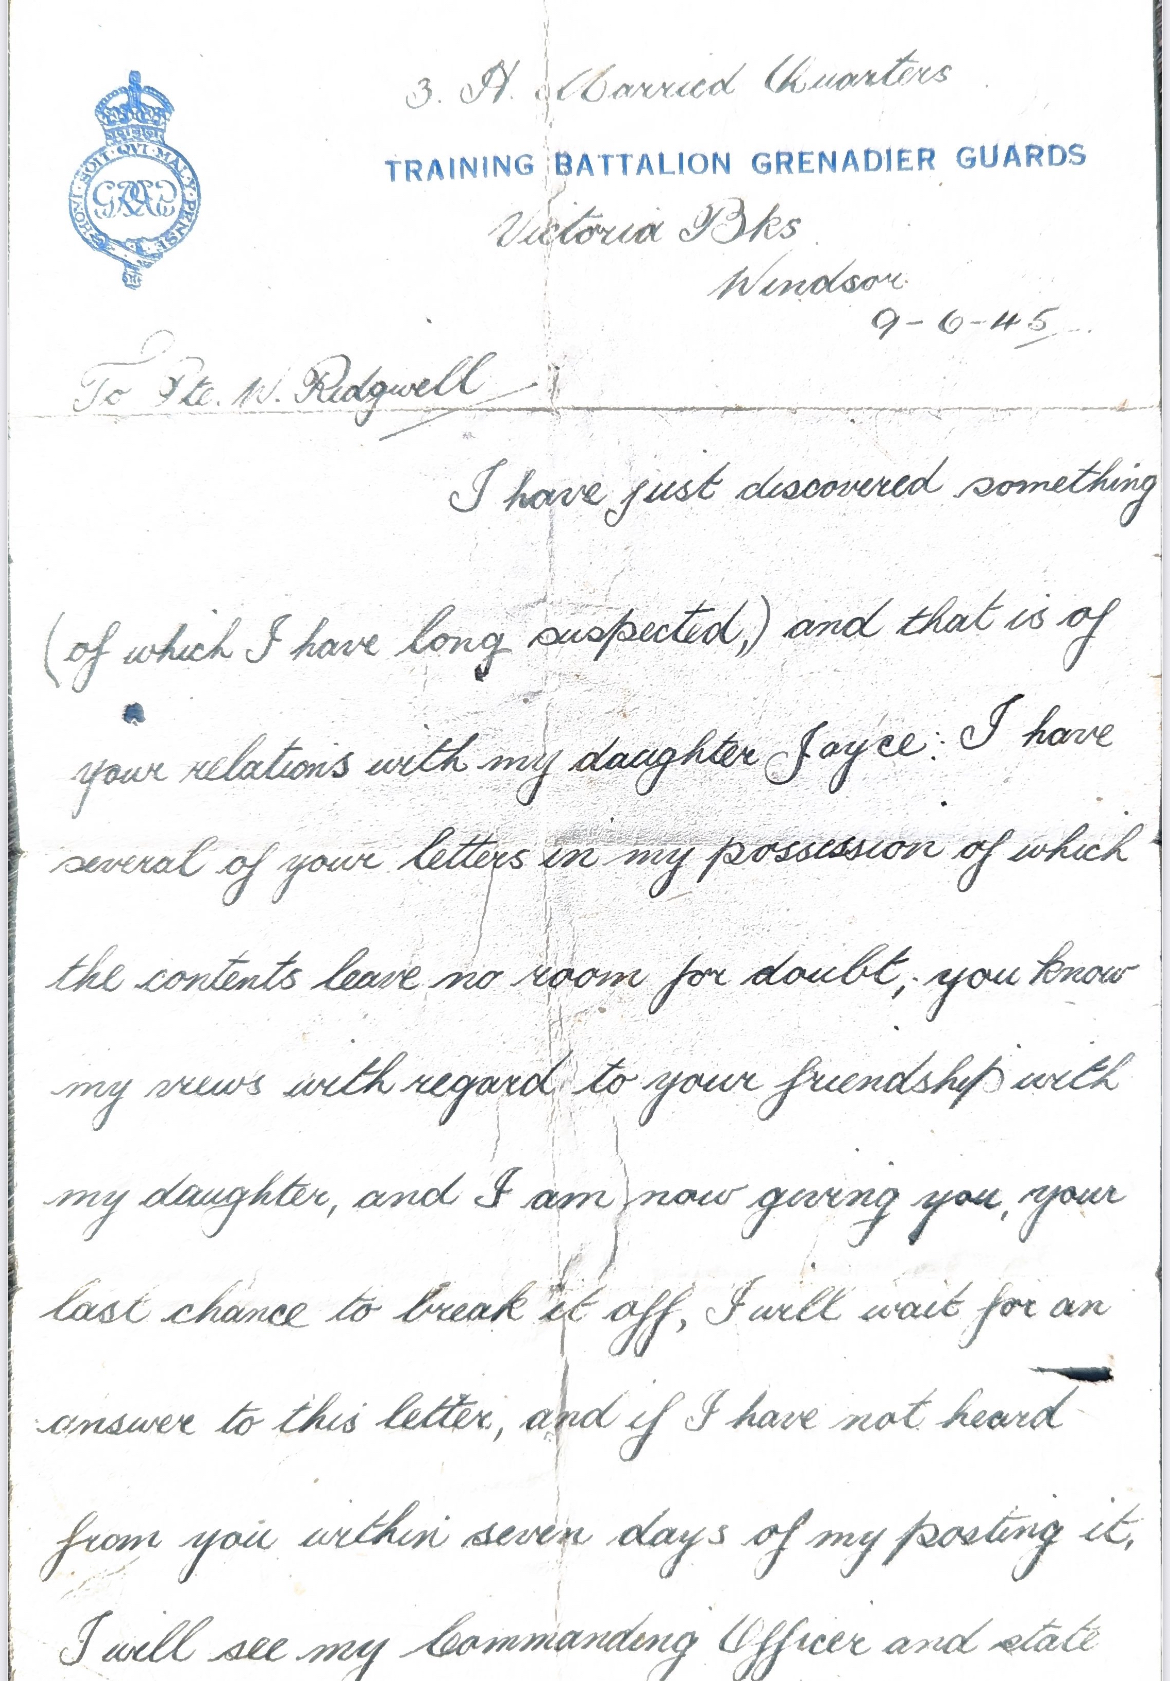 3. H. Married Quarters
TRAINING BATTALION GRENADIER GUARDS
HONI·SOIT·QVI·MAL·Y·PENSE
Victoria Bks
Windsor.
9-6-45
To Pte. W. Ridgwell
I have just discovered something
(of which I have long suspected,) and that is of
your relations with my daughter Joyce: I have
several of your letters in my possession of which
the contents leave no room for doubt, you know
my views with regard to your friendship with
my daughter, and I am now giving you, your
last chance to break it off, I will wait for an
answer to this letter, and if I have not heard
from you within seven days of my posting it,
I will see my Commanding Officer and state